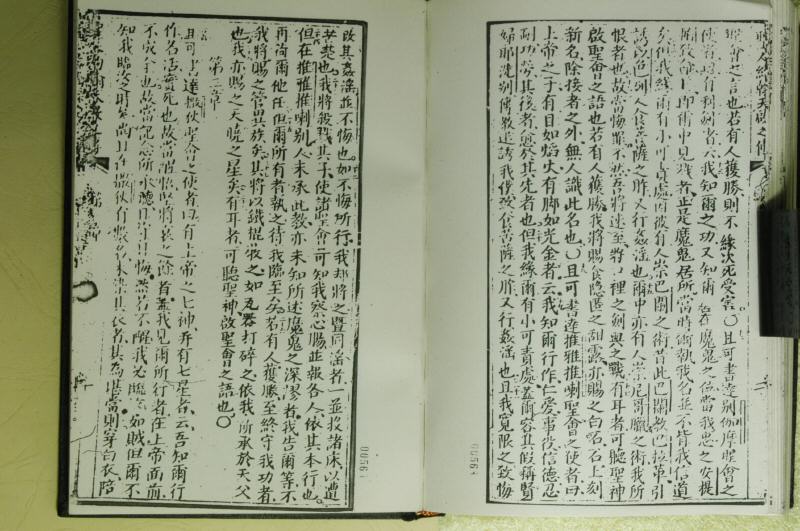 聖會之言也若有人獲勝則不緣次死受害〇且可書達別伽摩聖會之
使者曰有利劍者云我知爾之功又知爾居在魔鬼之位當我忠之安提
卽爾中見殺者正是魔鬼居所當時爾執我名並不背我信道
矣但我緣爾有小可責處因彼有人崇巴闌之術昔此巴闌教巴拉革引
誘以色列人食菩薩之胙又行姦淫也爾中亦有人崇尼哥臘之術我所
恨者也故當悔罪不然吾將速至將口裡之劍與之戰有耳者可聽聖神
啟聖會之語也若有人獲勝我將賜食隱匿之甜露亦賜之白石石上刻
新名除接者之外無人識此名也〇且可書達推雅推喇聖會之使者曰
上帝之子有目如焰火有脚如光金者云我知爾行作仁愛事役信德忍
耐功勞其後者愈於其先者也但我緣爾有小可責處蓋爾容其假稱賢
婦耶洗別傳教迷誘我僕致食菩薩之胙又行姦淫也且我寬限之致悔
改其姦淫並不悔也如不悔所行我却將之曁同淫者一並投諸床以遭
苦楚也我將殺戮其子使諸聖會可知我察心腸並報各人依其本行也
但在推雅推喇別人未承此教亦未知所述魔鬼之深謬者我告爾等不
再荷爾他任但爾所有者執之待我臨至矣若有人獲勝至終守我功者
我將賜之管異族矣其將以鐵棍牧之如瓦器打碎之依我所承於天父
也我亦賜之天曉之星矣有耳者可聽聖神啟聖會之語也〇
第三章
且可書達撒狄聖會之使者曰有上帝之七神幷有七星者云吾知爾行
作名活實死也故當醒悟堅將衰之餘者蓋我見爾所行者在上帝面前
不成全也故當記念所承聽且守且悔矣若不醒我必臨至如賊但爾不
知我臨汝之時矣尚且在撒狄有數名未染其衣者其為堪當則穿白衣陪